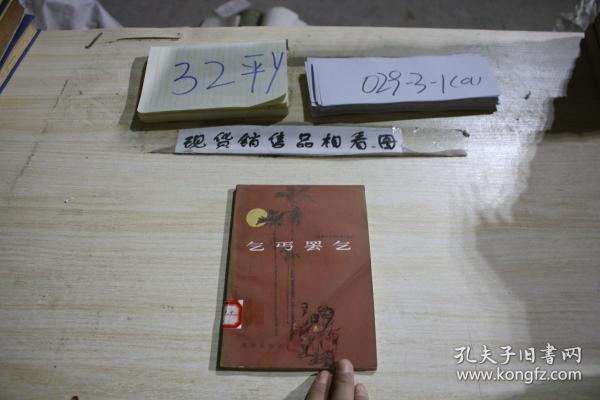 32平Y
029-3-1(a)
现货销售品相看图
乞丐罢乞
孔夫子旧书网
www.kongfz.com